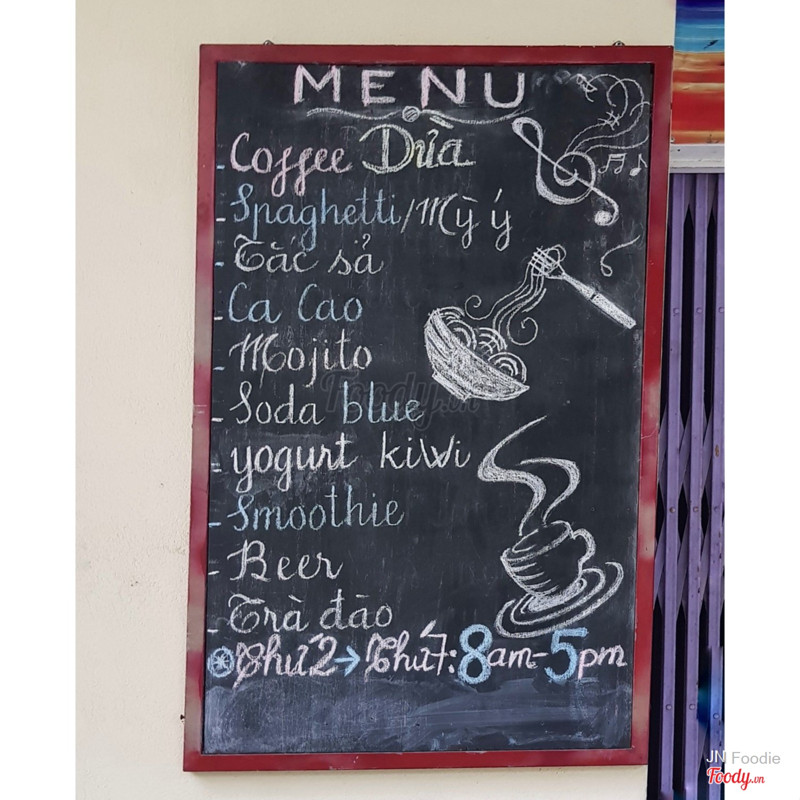 MENU
- Coffee Dừa
- Spaghetti/Mỳ ý
- Tắc sả
- Ca Cao
- Mojito
- Soda blue
- yogurt kiwi
- Smoothie
- Beer
- Trà đào
Thứ 2 → Thứ 7: 8am-5pm
Foody.vn
JN Foodie
Foody.vn